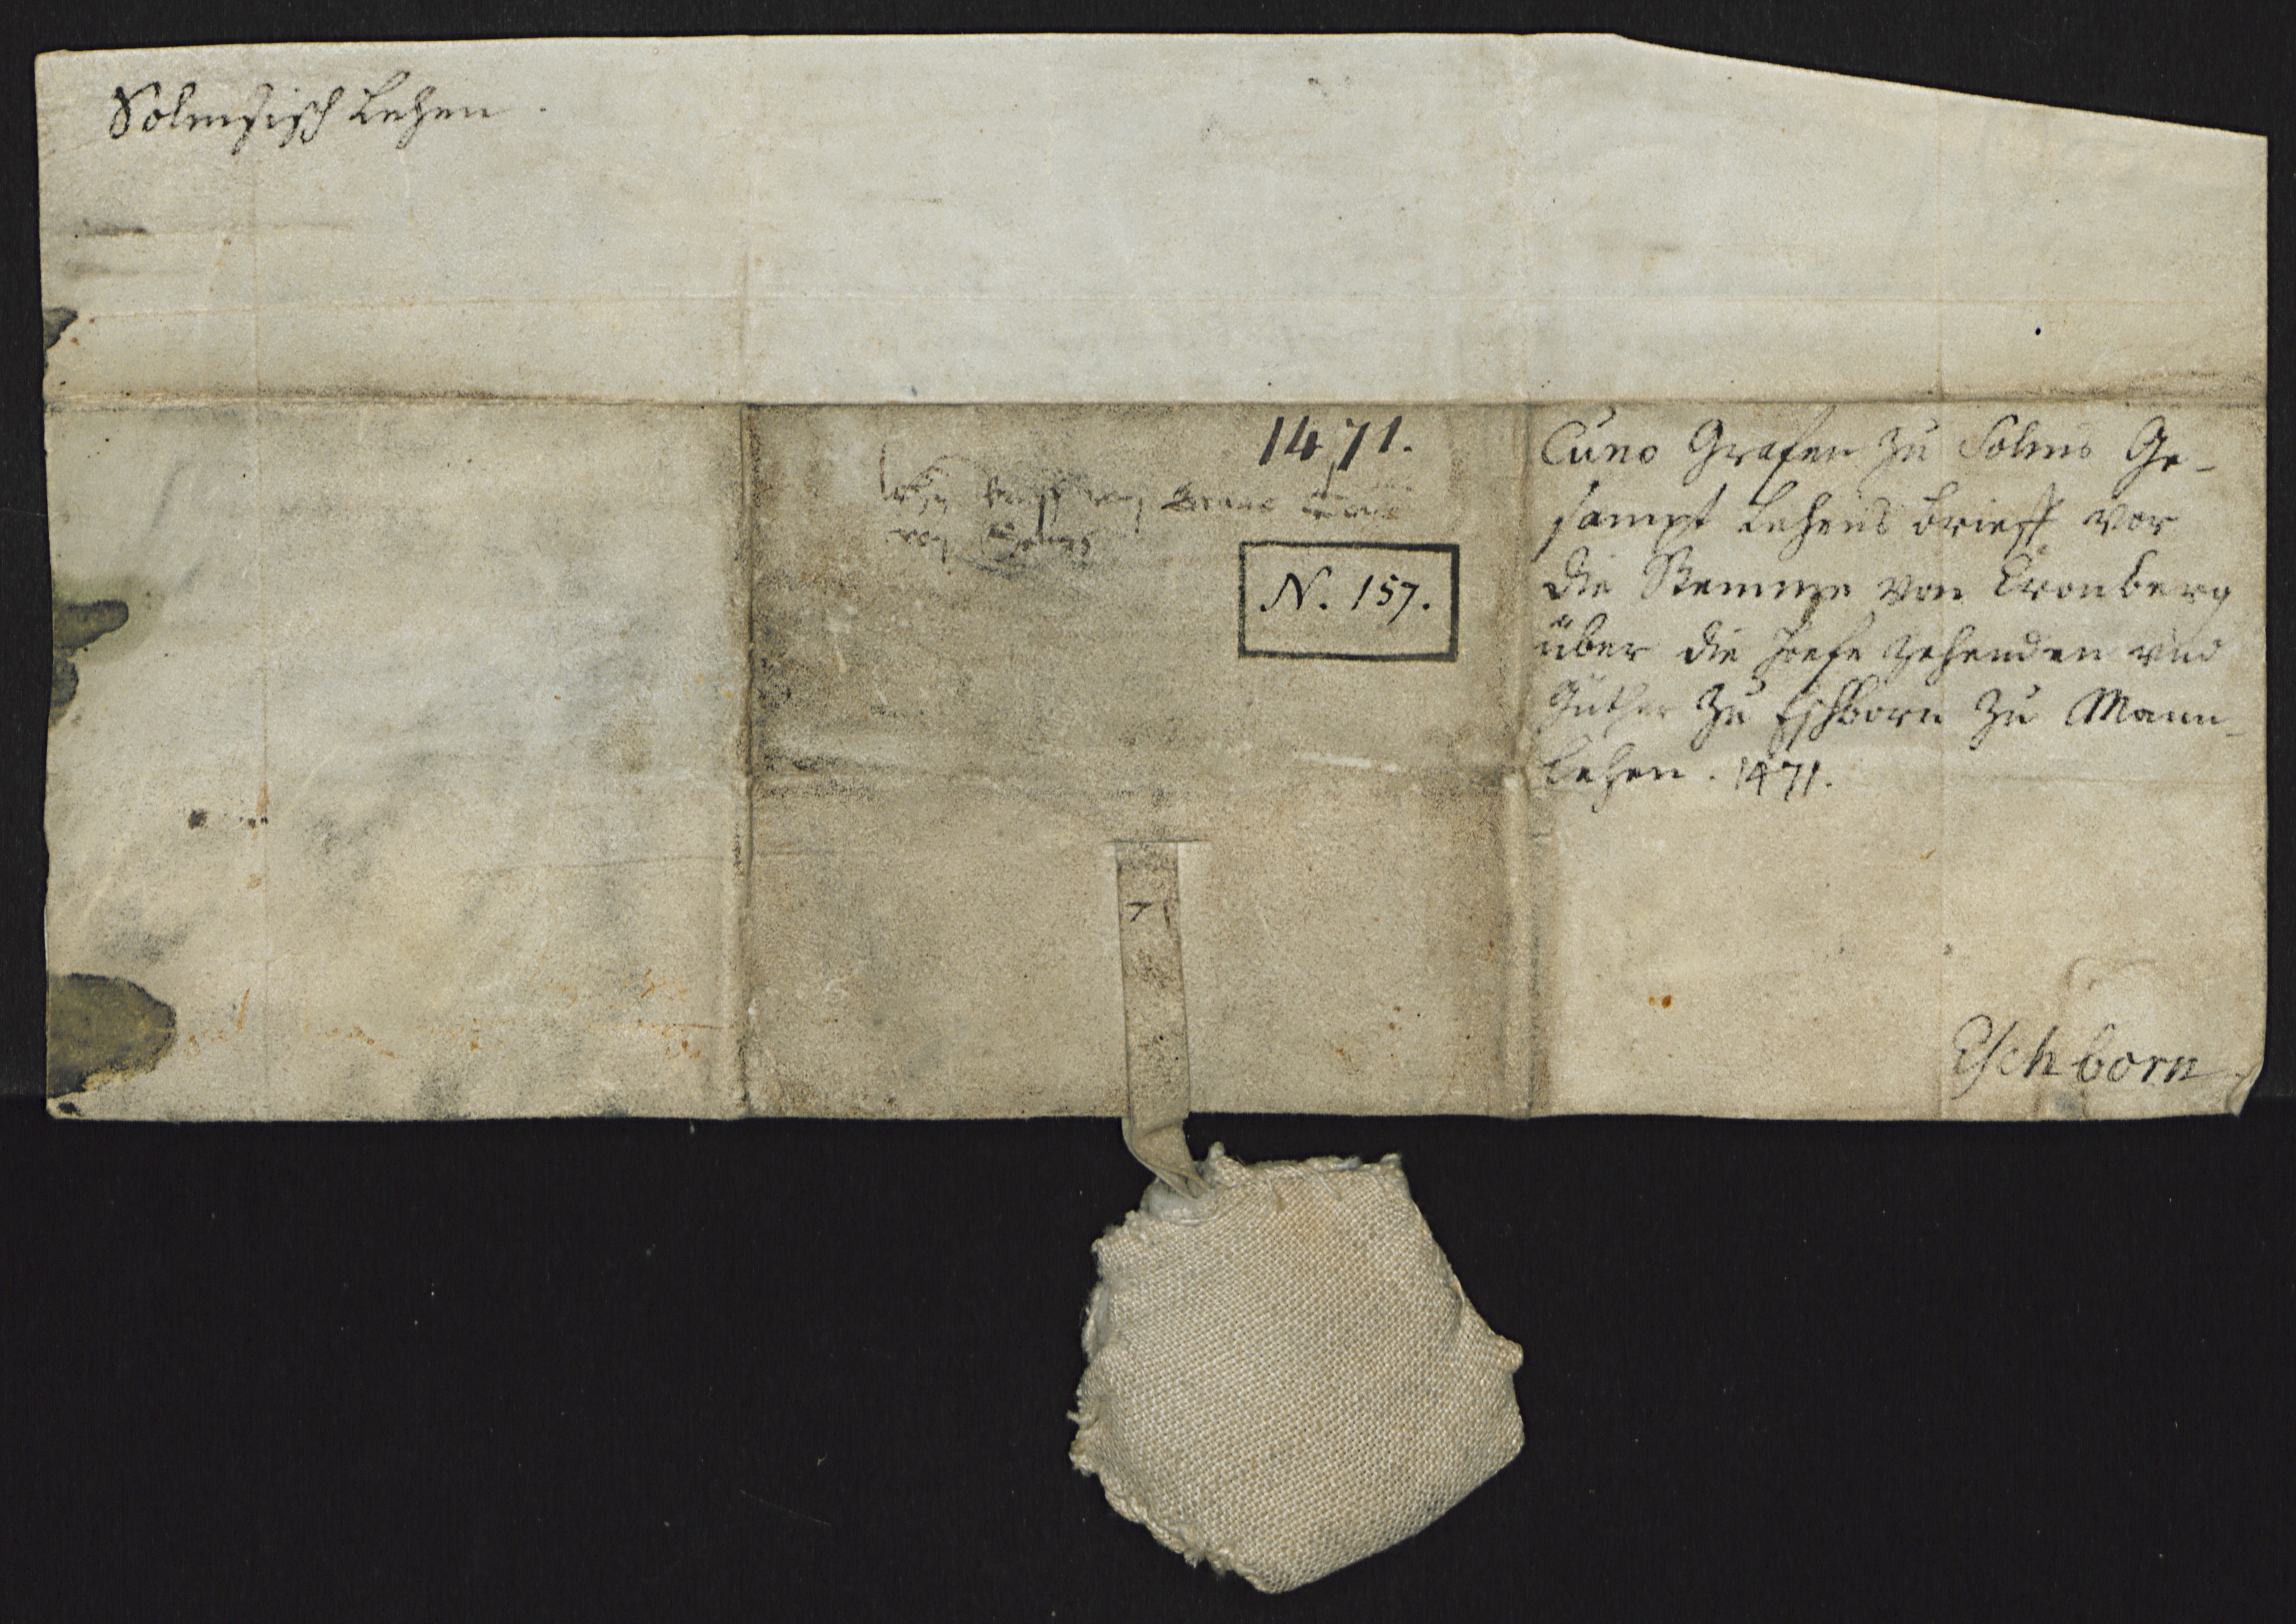 Solmsisch Lehen.
1471.
Lehen brieff von
von Solms
N. 157.
Cuno Grafen zu Solms Ge-
sampt Lehens brieff vor
die Stemme von Cronberg
über die Hoefe Zehenden und
Güther zu Eschborn zu Mann-
Lehen. 1471.
Eschborn